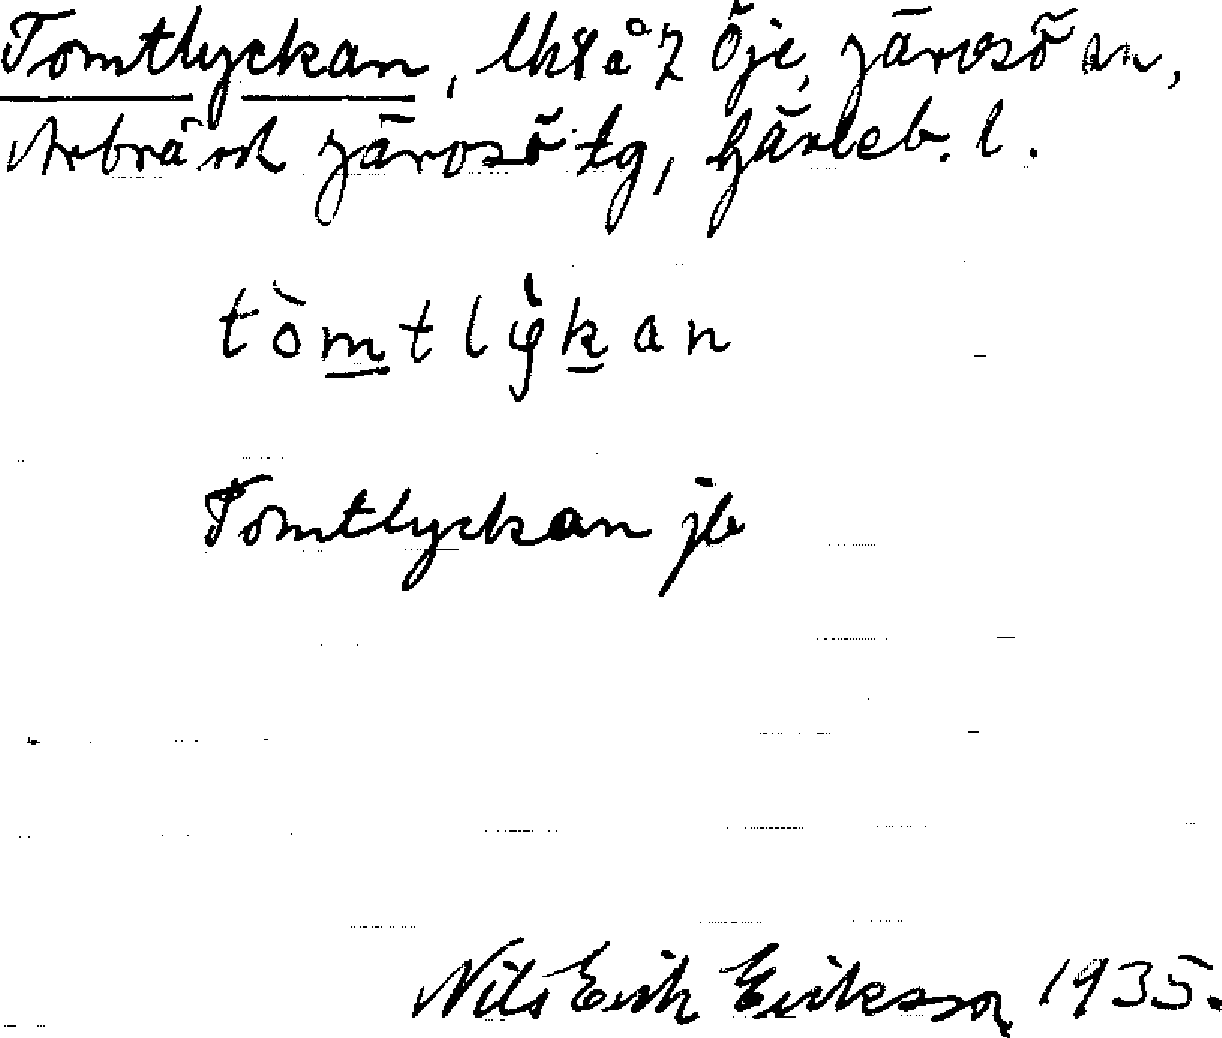 Tomtlyckan, lht å 7 Öje, Järvsö sn,
Arbrå och Järvsö tg, Gävleb. l.
tòmtlỳkan
Tomtlyckan jb
Nils Erik Eriksson 1935.